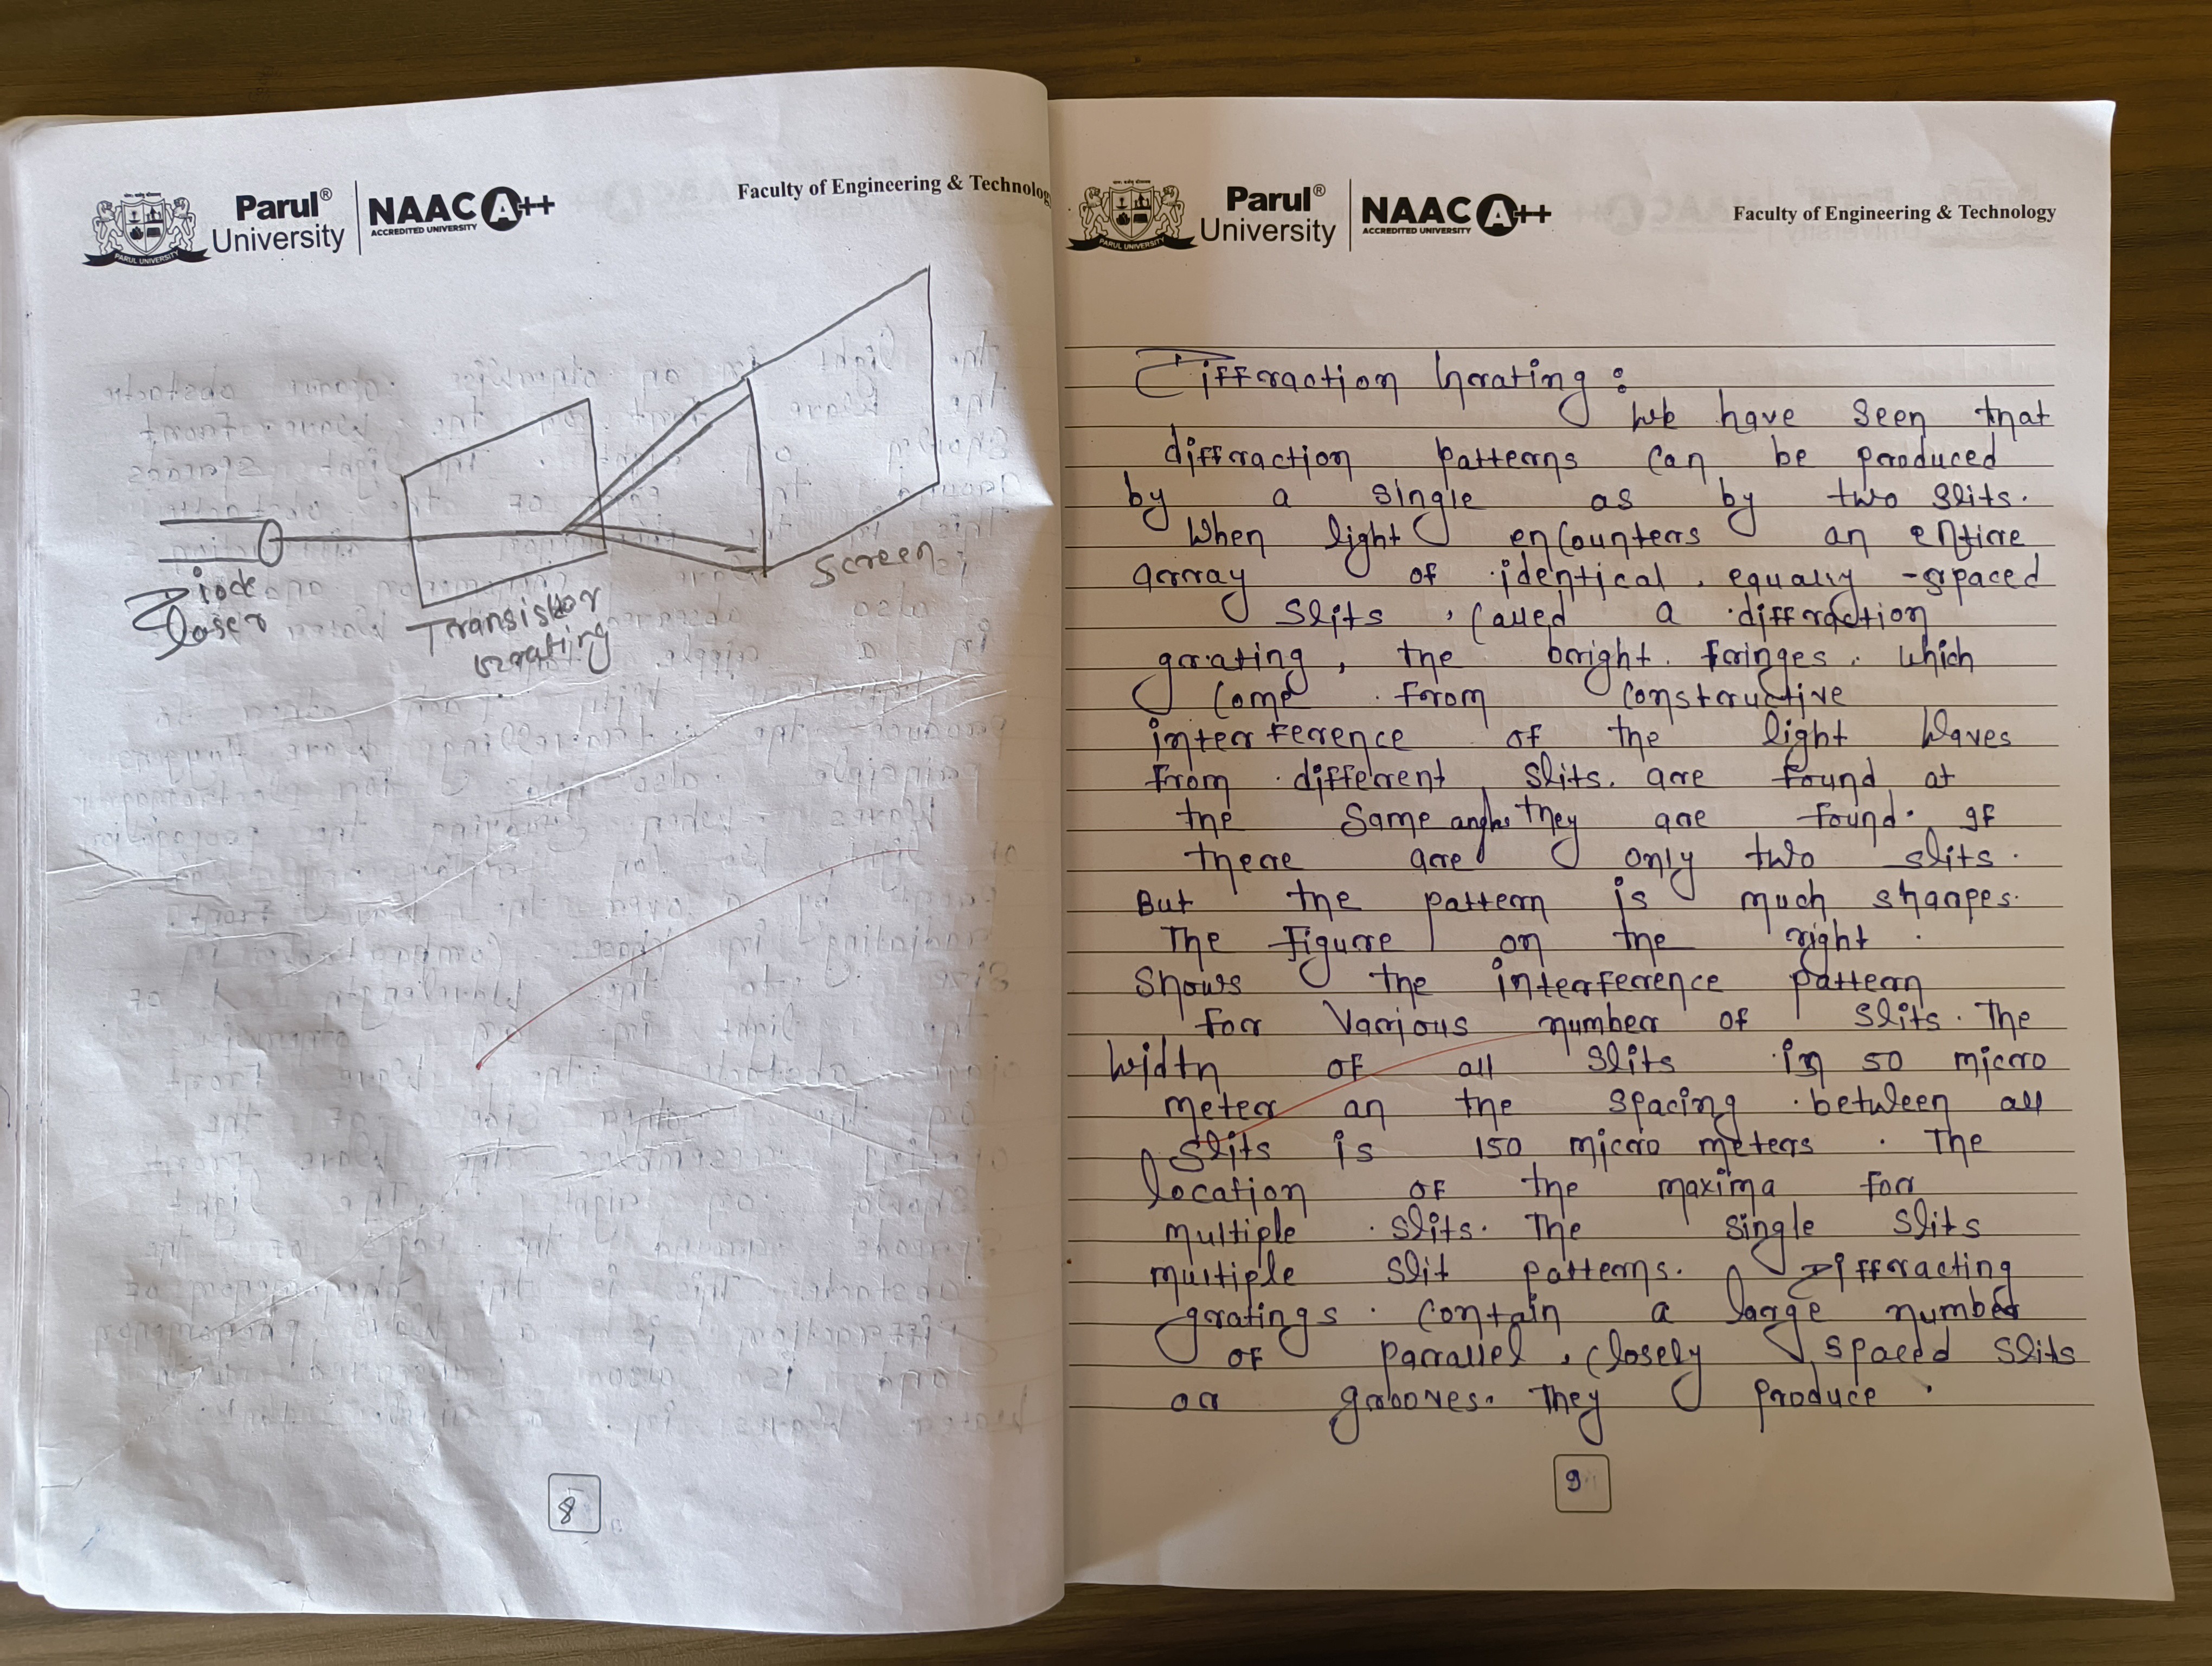 Parul® University
NAAC A++
ACCREDITED UNIVERSITY
PARUL UNIVERSITY
Faculty of Engineering & Technology
Screen
Diode
laser
Transistor
Grating
8
Parul® University
NAAC A++
ACCREDITED UNIVERSITY
PARUL UNIVERSITY
Faculty of Engineering & Technology
Diffraction Grating:
We have seen that
diffraction patterns can be produced
by a single as by two slits.
When light encounters an entire
array of identical, equally-spaced
slits, called a diffraction
grating, the bright fringes. which
come from constructive
interference of the light waves
from different slits. are found at
the same angle they are found. If
there are only two slits.
But the pattern is much sharpes.
The Figure on the right.
Shows the interference pattern
for Various number of slits. The
width of all slits in 50 micro
meter an the spacing between all
slits is 150 micro meters. The
location of the maxima for
multiple slits. The single slits
multiple slit patterns. Diffracting
gratings contain a large number
of parrallel, closely spaced slits
or grooves. They produce.
9